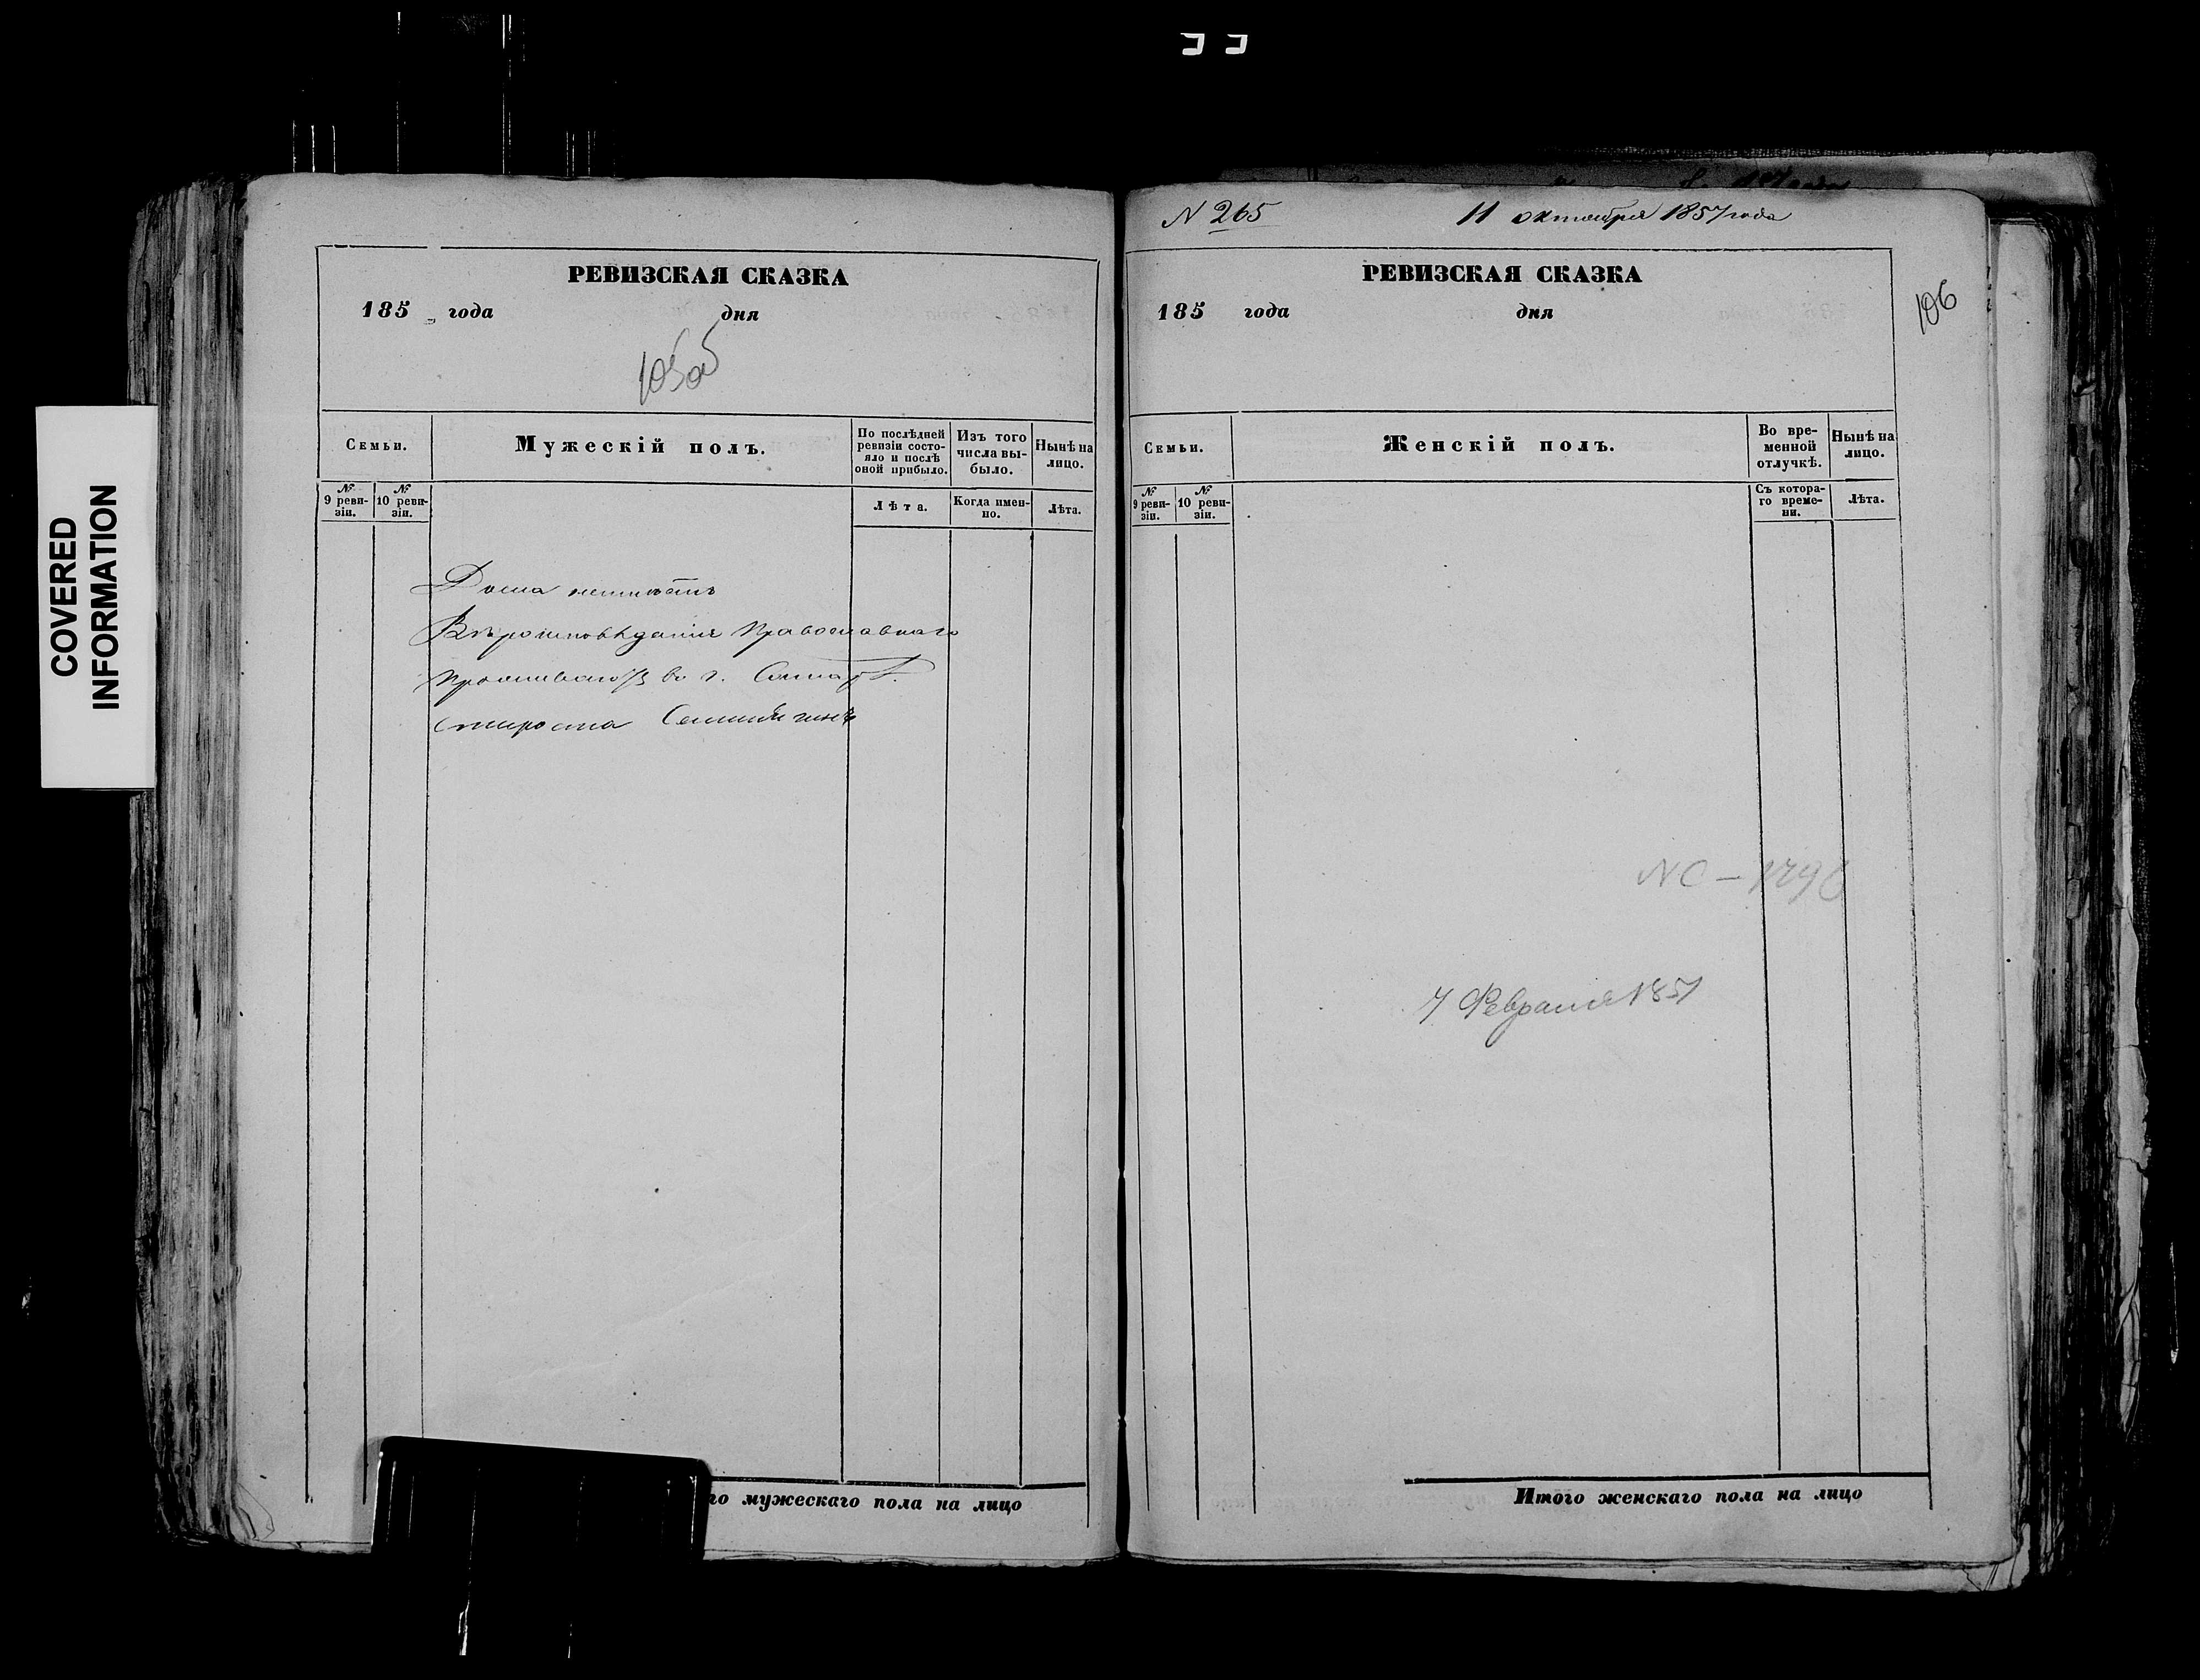 COVERED
INFORMATION
РЕВИЗСКАЯ СКАЗКА
185 года дня
105об
Семьи.
Мужескій полъ.
По послѣдней
ревизіи состо-
яло и послѣ
оной прибыло.
Изъ того
числа вы-
было.
Нынѣ на
лицо.
№
9 реви-
зіи.
№
10 реви-
зіи.
Лѣта.
Когда имен-
но.
Лѣта.
Дома неимѣетъ
Вѣроисповѣданія Православнаго
Проживаютъ во г.
Староста
го мужескаго пола на лицо
N 265
11 октября 1857 года
РЕВИЗСКАЯ СКАЗКА
185 года дня
106
Семьи.
Женскій полъ.
Во вре-
менной
отлучкѣ.
Нынѣ на
лицо.
№
9 реви-
зіи.
№
10 реви-
зіи.
Съ котора-
го време-
ни.
Лѣта.
7 Февраля 1851
Итого женскаго пола на лицо